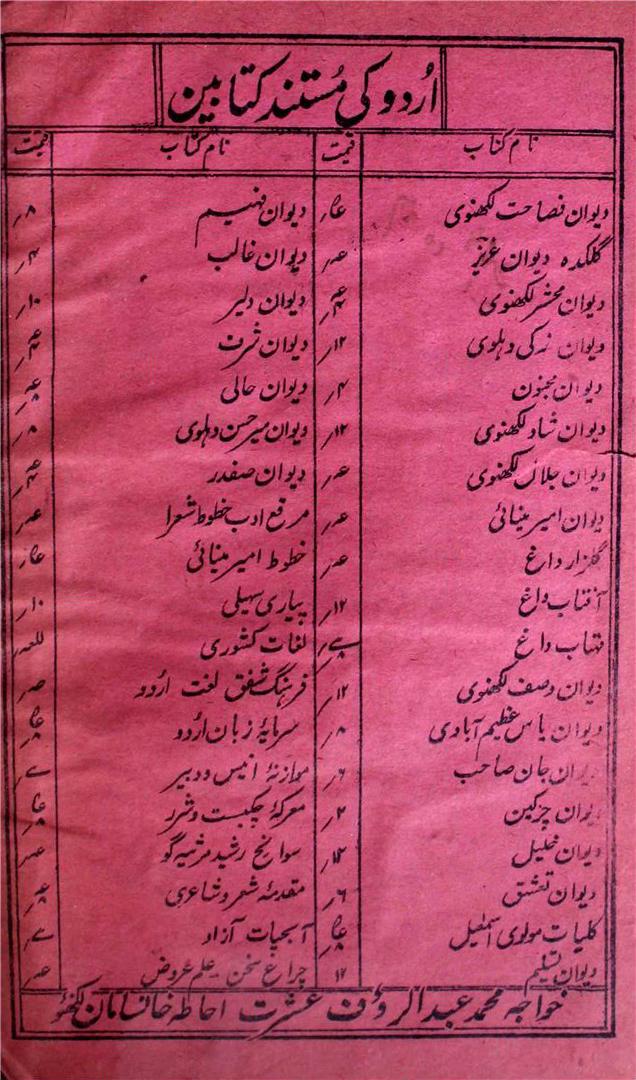 اُردو کی مُستند کتابین
نام کتاب قیمت نام کتاب قیمت
دیوان فصاحت لکھنوی دیوان فہیم ۸؍
گلکدہ دیوان عزیز دیوان غالب ۴؍
دیوان محشر لکھنوی دیوان دلیر ۱۰؍
دیوان زکی دہلوی ۱۲؍ دیوان شرف
دیوان مجنون ۴؍ دیوان حالی
دیوان شاد لکھنوی ۱۲؍ دیوان میر حسن دہلوی ۸؍
دیوان جلال لکھنوی دیوان صفدر
دیوان امیر مینائی مرقع ادب خطوط شعرا
گلزار داغ خطوط امیر مینائی
آفتاب داغ ۱۲؍ پیاری سہیلی ۱۰؍
مہتاب داغ لغات کشوری
دیوان وصف لکھنوی ۱۲؍ فرہنگ شفق لغت اردو
دیوان یاس عظیم آبادی ۸؍ سرمایۂ زبان اُردو
دیوان جان صاحب ۶؍ موازنۂ انیس و دبیر
دیوان چرکین ۲؍ معرکۂ چکبست و شرر
دیوان خلیل ۱۴؍ سوانح رشید مرثیہ گو
دیوان تعشق ۶؍ مقدمۂ شعر و شاعری
کلیات مولوی اسمٰعیل آبحیات آزاد
دیوان تسلیم ۱۲ چراغ سخن۔ علم عروض
خواجہ محمد عبدالرؤف عشرت احاطہ خانسامان لکھنؤ